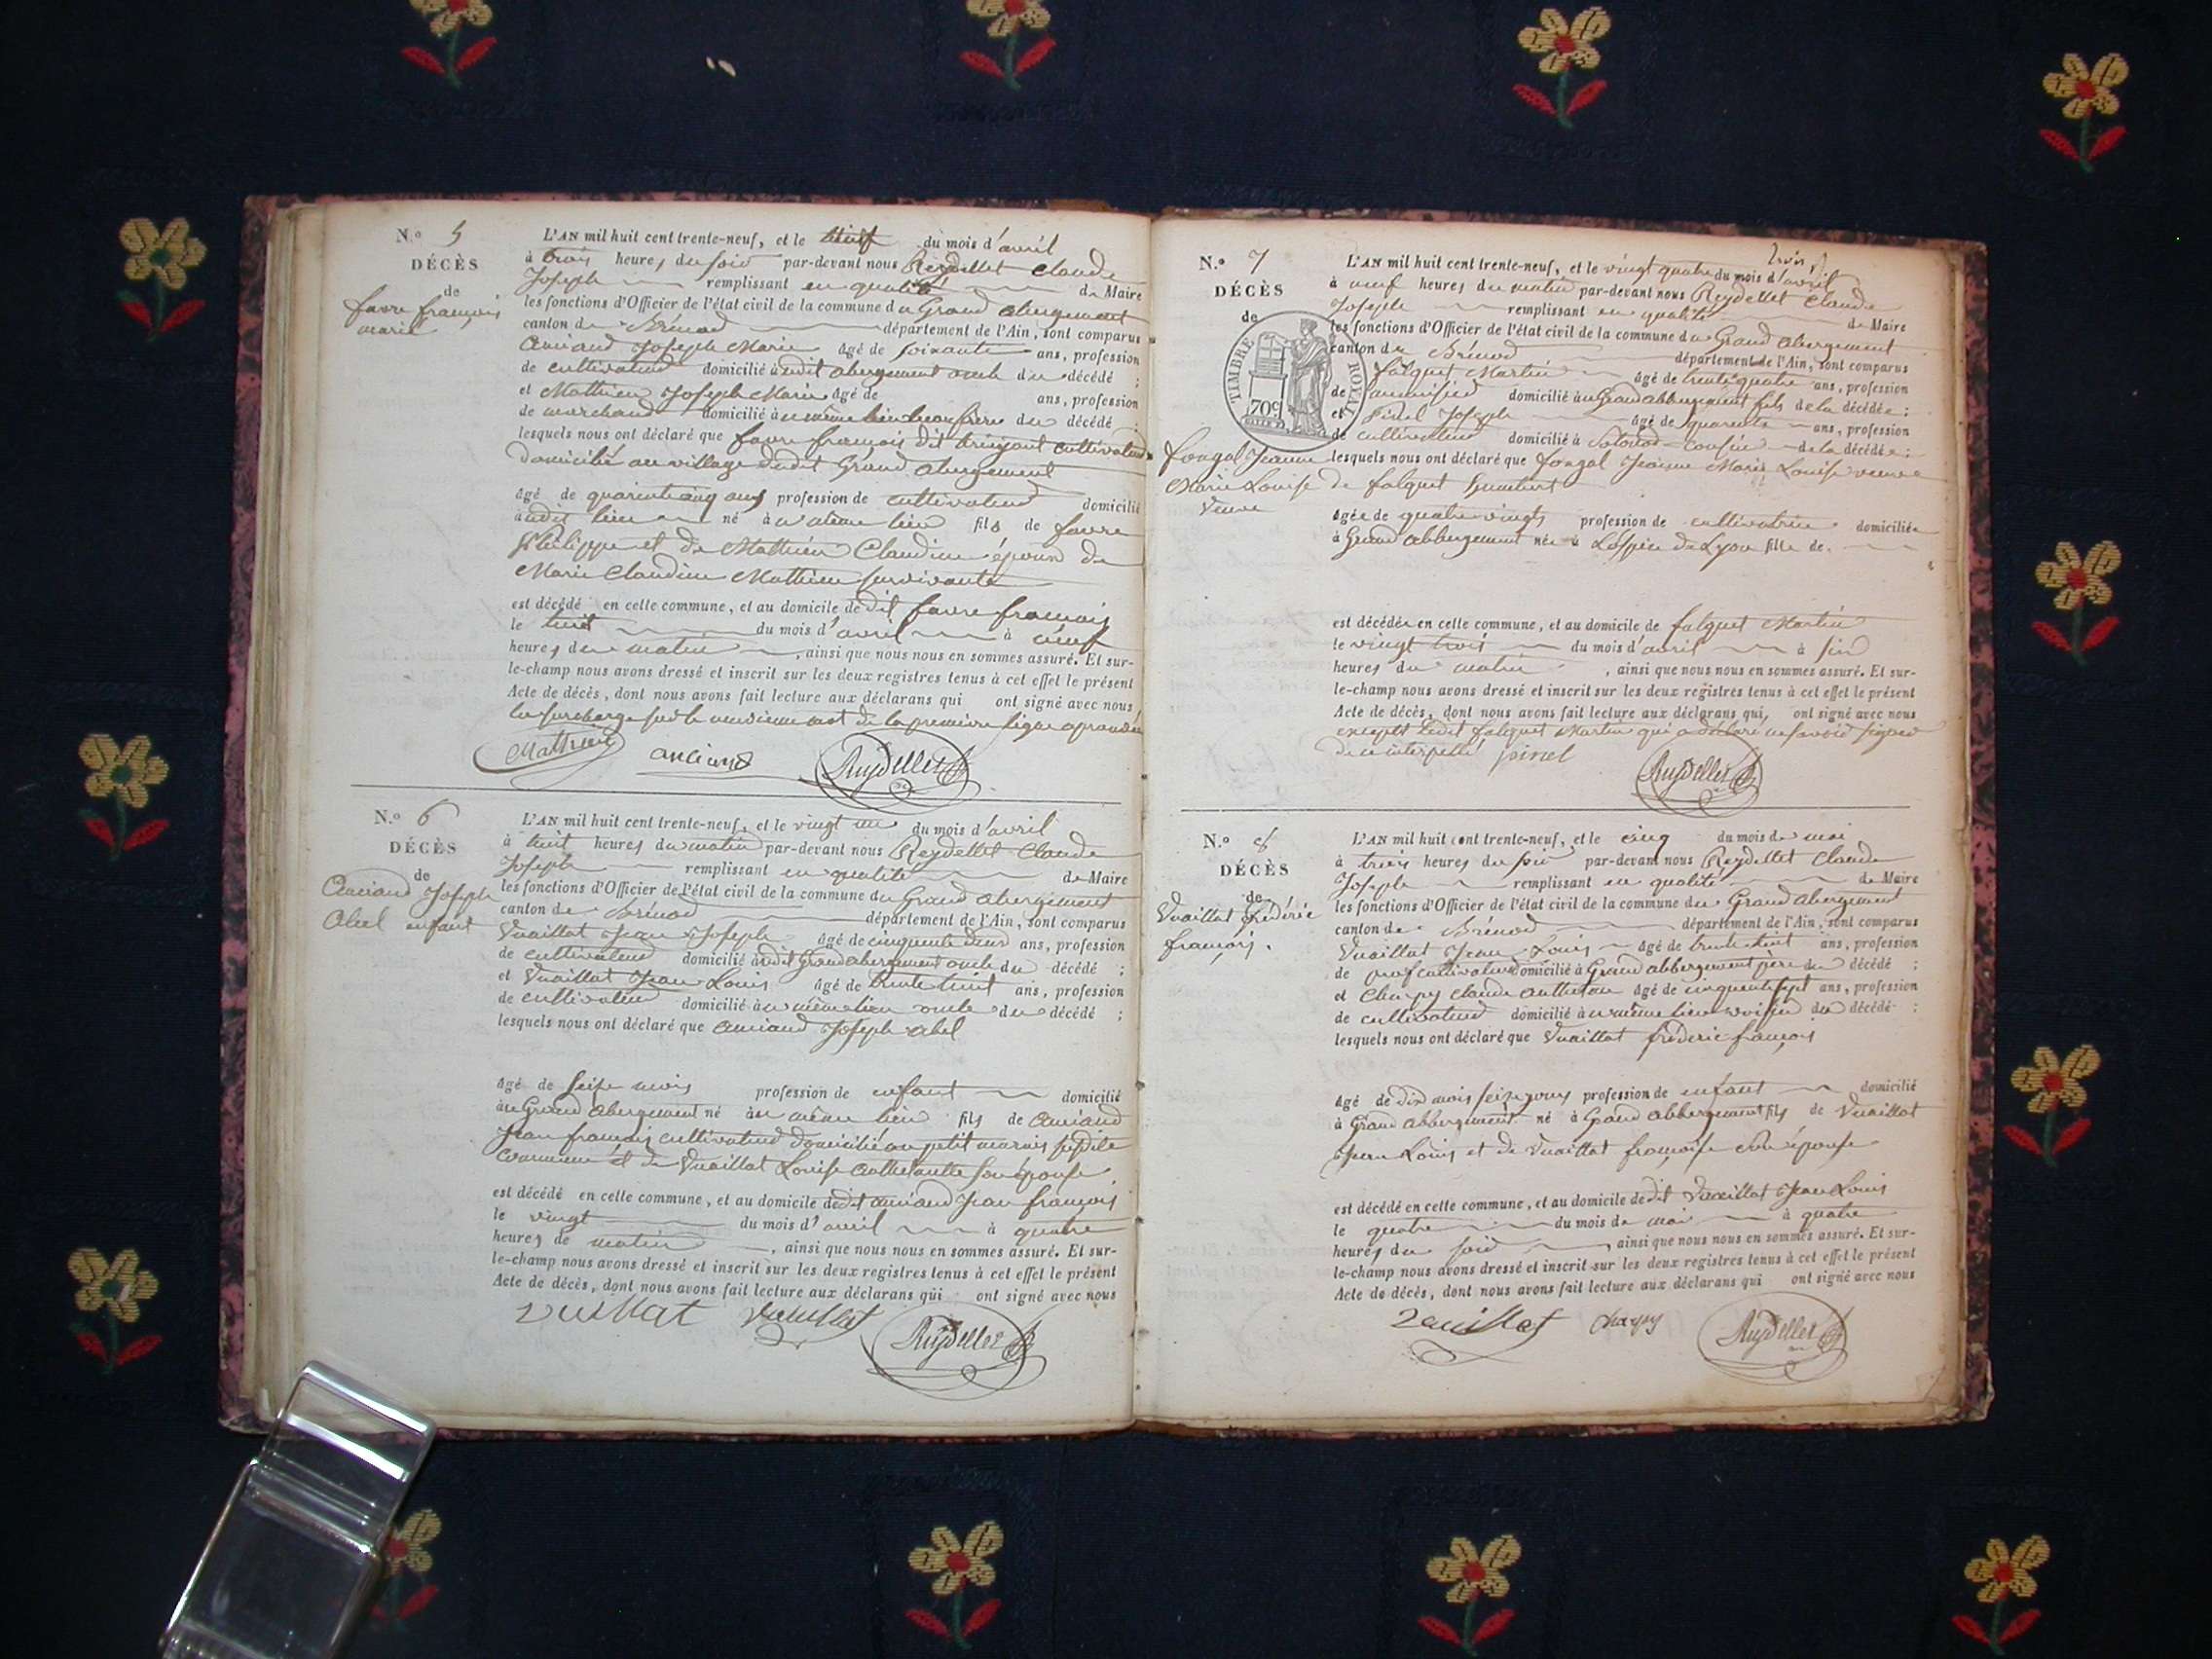 N.o 5
DÉCÈS
de
favre françois
marie
L'AN mil huit cent trente-neuf, et le du mois d'avril
à trois heures du soir par-devant nous Reydellet Claude
Joseph remplissant en qualité de Maire
les fonctions d'Officier de l'état civil de la commune du Grand abergement
canton de Brénod département de l'Ain, sont comparus
Anciand Joseph Marie âgé de soixante ans, profession
de cultivateur domicilié audit abergement oncle du décédé ;
et Mathieu Joseph Marie âgé de ans, profession
de marchand domicilié au même lieu beau frère du décédé ;
lesquels nous ont déclaré que favre françois dit cultivateur
domicilié au village dudit Grand abergement
âgé de quarante cinq ans profession de cultivateur domicilié
audit lieu né au même lieu fils de favre
Philippe et de Mathieu Claudine époux de
Marie Claudine Mathieu survivante
est décédé en cette commune, et au domicile de dit favre françois
le huit du mois d'avril à neuf
heures du matin, ainsi que nous nous en sommes assuré. Et sur-
le-champ nous avons dressé et inscrit sur les deux registres tenus à cet effet le présent
Acte de décès, dont nous avons fait lecture aux déclarans qui ont signé avec nous
la surcharge sur le mot de la premiere ligne
Mathieu anciand Reydellet
N.o 6
DÉCÈS
de
Anciand Joseph
Abel enfant
L'AN mil huit cent trente-neuf, et le vingt un du mois d'avril
à huit heures du matin par-devant nous Reydellet Claude
Joseph remplissant en qualité de Maire
les fonctions d'Officier de l'état civil de la commune du Grand abergement
canton de Brénod département de l'Ain, sont comparus
Vuaillat Jean Joseph âgé de cinquante deux ans, profession
de cultivateur domicilié audit Grand abergement oncle du décédé ;
et Vuaillat Jean Louis âgé de trente huit ans, profession
de cultivateur domicilié au même lieu oncle du décédé ;
lesquels nous ont déclaré que anciand Joseph abel
âgé de seize mois profession de enfant domicilié
au Grand abergement né au même lieu fils de anciand
Jean françois cultivateur domicilié au petit marais susdite
commune et de Vuaillat Louise Anthelmette son épouse
est décédé en cette commune, et au domicile dedit anciand Jean françois
le vingt du mois d'avril à quatre
heures de matin, ainsi que nous nous en sommes assuré. Et sur-
le-champ nous avons dressé et inscrit sur les deux registres tenus à cet effet le présent
Acte de décès, dont nous avons fait lecture aux déclarans qui ont signé avec nous
Vuaillat Vuaillat Reydellet
N.o 7
DÉCÈS
de
TIMBRE ROYAL
70c
fongal Jeanne
Marie Louise
Veuve
L'AN mil huit cent trente-neuf, et le vingt quatre du mois d'avril
à neuf heures du matin par-devant nous Reydellet Claude
Joseph remplissant en qualité de Maire
les fonctions d'Officier de l'état civil de la commune du Grand abergement
canton de Brénod département de l'Ain, sont comparus
falquet Martin âgé de trente quatre ans, profession
de domicilié au Grand abbergement fils de la décédée ;
et pinel Joseph âgé de quarante ans, profession
de cultivateur domicilié à Sotonod cousin de la décédée ;
lesquels nous ont déclaré que fongal Jeanne Marie Louise veuve
de falquet humbert
âgée de quatre vingts profession de cultivatrice domiciliée
à Grand abbergement née à Lospice de Lyon fille de
est décédée en cette commune, et au domicile de falquet Martin
le vingt trois du mois d'avril à six
heures du matin, ainsi que nous nous en sommes assuré. Et sur-
le-champ nous avons dressé et inscrit sur les deux registres tenus à cet effet le présent
Acte de décès, dont nous avons fait lecture aux déclarans qui ont signé avec nous
excepté ledit falquet Martin qui a déclaré ne savoir signer
de ce interpellé pinel Reydellet
N.o 8
DÉCÈS
de
Vuaillat frédéric
françois.
L'AN mil huit cent trente-neuf, et le cinq du mois de mai
à trois heures du soir par-devant nous Reydellet Claude
Joseph remplissant en qualité de Maire
les fonctions d'Officier de l'état civil de la commune du Grand abergement
canton de Brénod département de l'Ain, sont comparus
Vuaillat Jean Louis âgé de trente huit ans, profession
de prof cultivateur domicilié à Grand abbergement père du décédé ;
et Charpy Claude Anthelme âgé de cinquante sept ans, profession
de cultivateur domicilié au même lieu voisin du décédé ;
lesquels nous ont déclaré que Vuaillat frederic françois
âgé de dix mois seize jours profession de enfant domicilié
à Grand abbergement né à Grand abbergement fils de Vuaillat
Jean Louis et de Vuaillat françoise son épouse
est décédé en cette commune, et au domicile dedit Vuaillat Jean Louis
le quatre du mois de mai à quatre
heures du soir, ainsi que nous nous en sommes assuré. Et sur-
le-champ nous avons dressé et inscrit sur les deux registres tenus à cet effet le présent
Acte de décès, dont nous avons fait lecture aux déclarans qui ont signé avec nous
Vuaillat charpy Reydellet